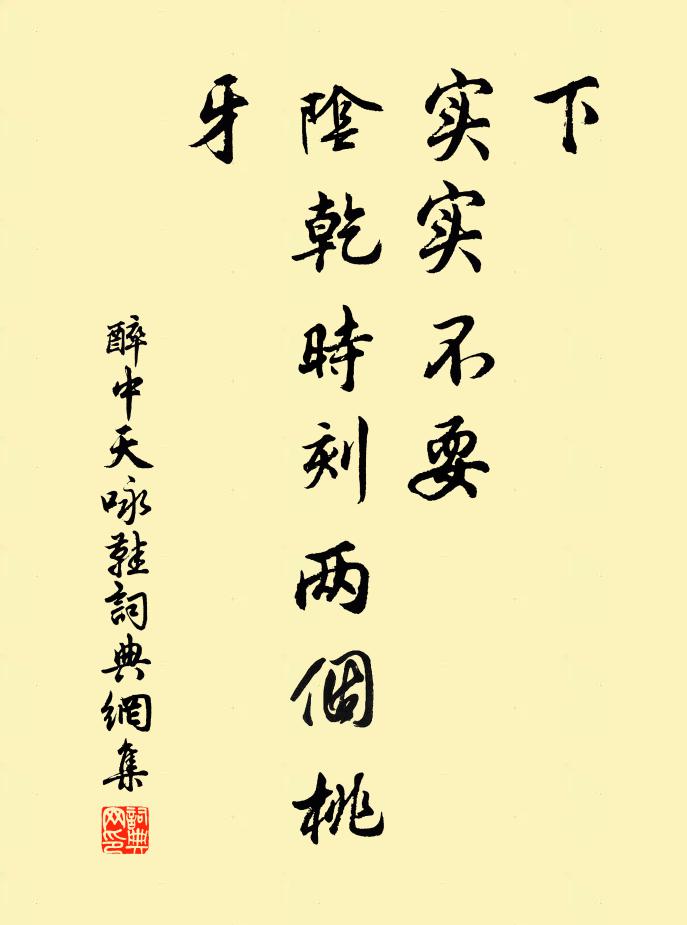 下
实实不要
陰乾時刻两個桃
牙
醉中天咏鞋詞典網集
詞典网印